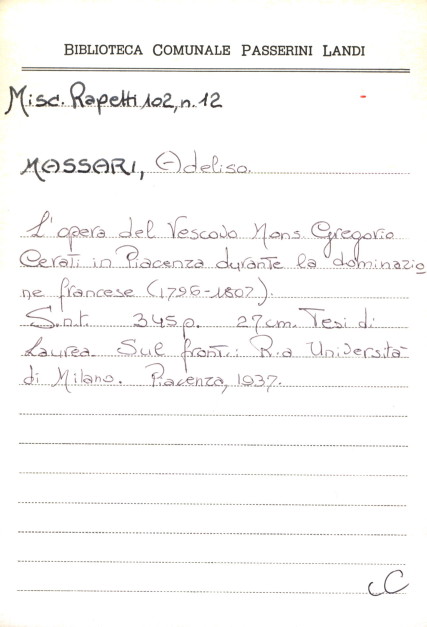 BIBLIOTECA COMUNALE PASSERINI LANDI
Misc. Rapetti 102, n. 12
MASSARI, Adeliso.
L'opera del Vescovo Mons. Gregorio
Cerati in Piacenza durante la dominazio
ne francese (1796-1807).
S.n.t. 345 p. 27 cm. Tesi di
Laurea. Sul front.: R.a Università
di Milano. Piacenza, 1937.
C